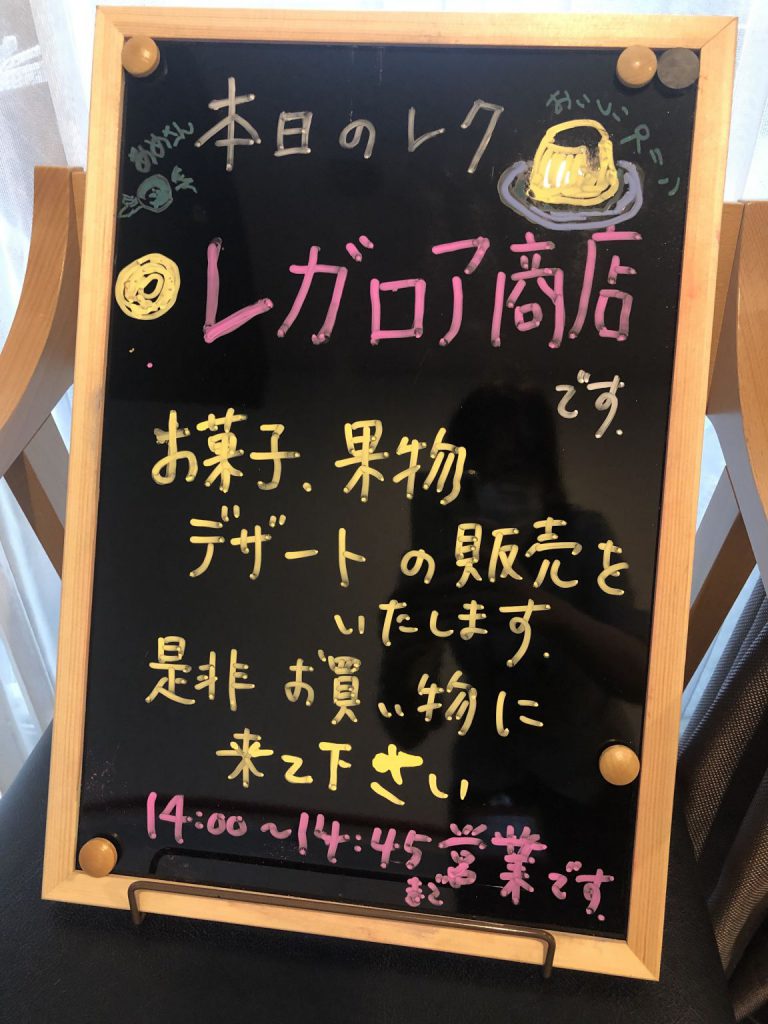 本日のレク
おいしいプリン
あめちゃん
レガロア商店
です.
お菓子、果物
デザートの販売を
いたします.
是非 お買い物に
来て下さい
14:00~14:45まで営業です.